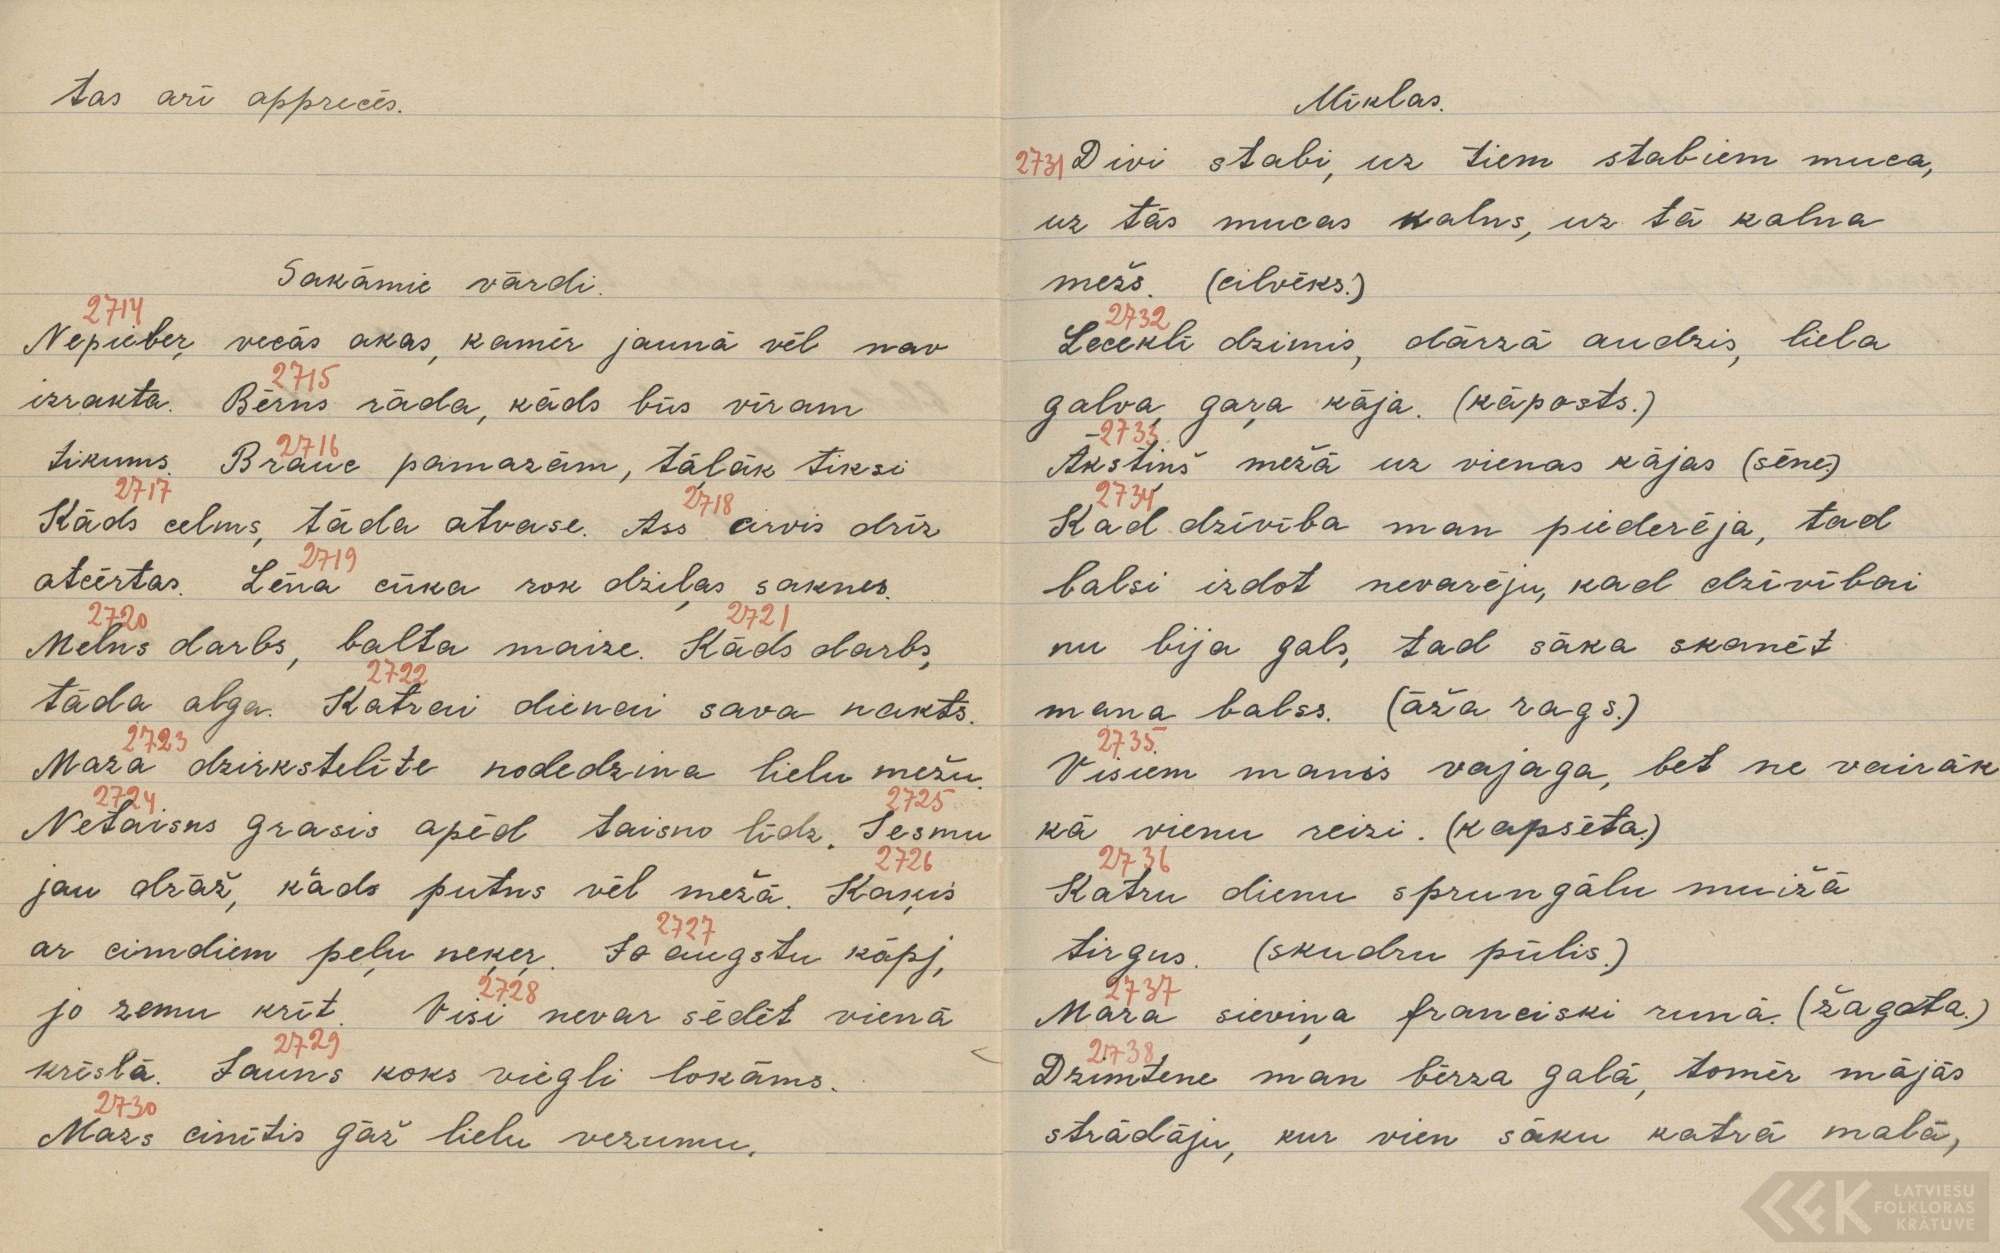 tas arī apprecēs.
Sakāmie vārdi.
2714
Nepieber vecās akas, kamēr jaunā vēl nav
2715
izrakta. Bērns rāda, kāds būs vīram
2716
tikums. Brauc pamazām, tāļāk tiksi
2717 2718
Kāds celms, tāda atvase. Ass cirvis drīz
2719
atcērtas. Lēna cūka rok dziļas saknes.
2720 2721
Melns darbs, balta maize. Kāds darbs,
2722
tāda alga. Katrai dienai sava nakts.
2723
Maza dzirkstelīte nodedzina lielu mežu.
2724 2725
Netaisns grasis apēd taisno līdz. Jesmu
2726
jau drāž, kāds putns vēl mežā. Kaķis
2727
ar cimdiem peļu neķer. Jo augstu kāpj,
2728
jo zemu krīt. Visi nevar sēdēt vienā
2729
krēslā. Jauns koks viegli lokāms.
2730
Mazs cinītis gāž lielu vezumu.
Mīklas.
2731 Divi stabi, uz tiem stabiem muca,
uz tās mucas kalns, uz tā kalna
mežs. (cilvēks.)
2732
Lecektī dzimis, dārzā audzis, liela
galva, gaŗa kāja. (kāposts.)
2733
Ākstiņš mežā uz vienas kājas (sēne.)
2734
Kad dzīvība man piederēja, tad
balsi izdot nevarēju, kad dzīvībai
nu bija gals, tad sāka skanēt
mana balss. (āža rags.)
2735
Visiem manis vajaga, bet ne vairāk
kā vienu reizi. (kapsēta.)
2736
Katru dienu sprungālu muižā
tirgus. (skudru pūlis.)
2737
Maza sieviņa franciski runā. (žagata.)
2738
Dzimtene man bērza galā, tomēr mājās
strādāju, kur vien sāku katrā malā,
LATVIEŠU
FOLKLORAS
KRĀTUVE